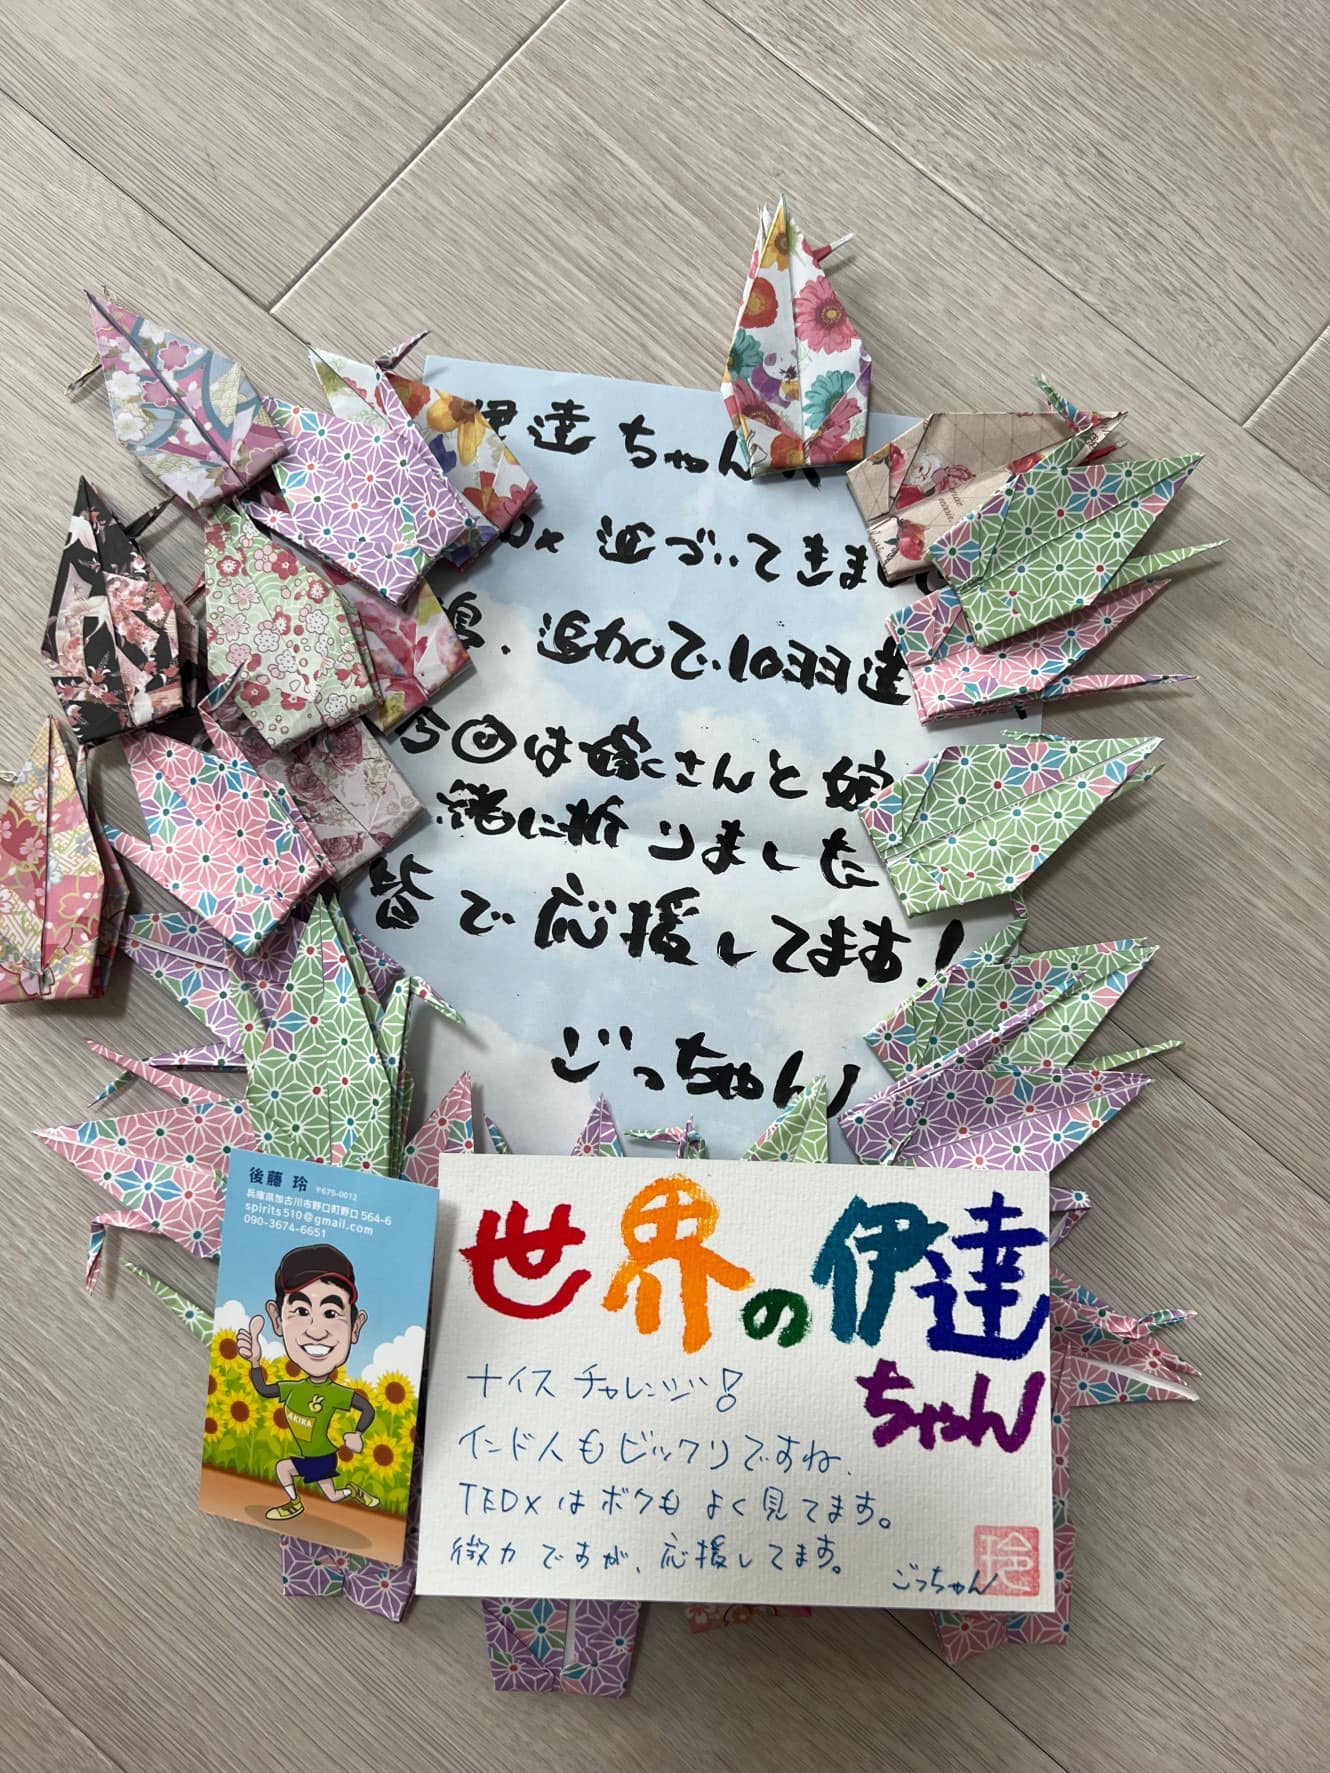 伊達ちゃんへ
Dx 近づいてきまし
、追加で103羽達
今回は嫁さんと嫁
緒に折りました
皆で応援してます!
ごっちゃん
後藤 玲 〒675-0012
兵庫県加古川市野口町野口 564-6
spirits510@gmail.com
090-3674-6651
AKIRA
世界の伊達
ちゃん
ナイス チャレンジ!
インド人もビックリですね、
TEDxはボクもよく見てます。
微力ですが、応援してます。
ごっちゃん 玲